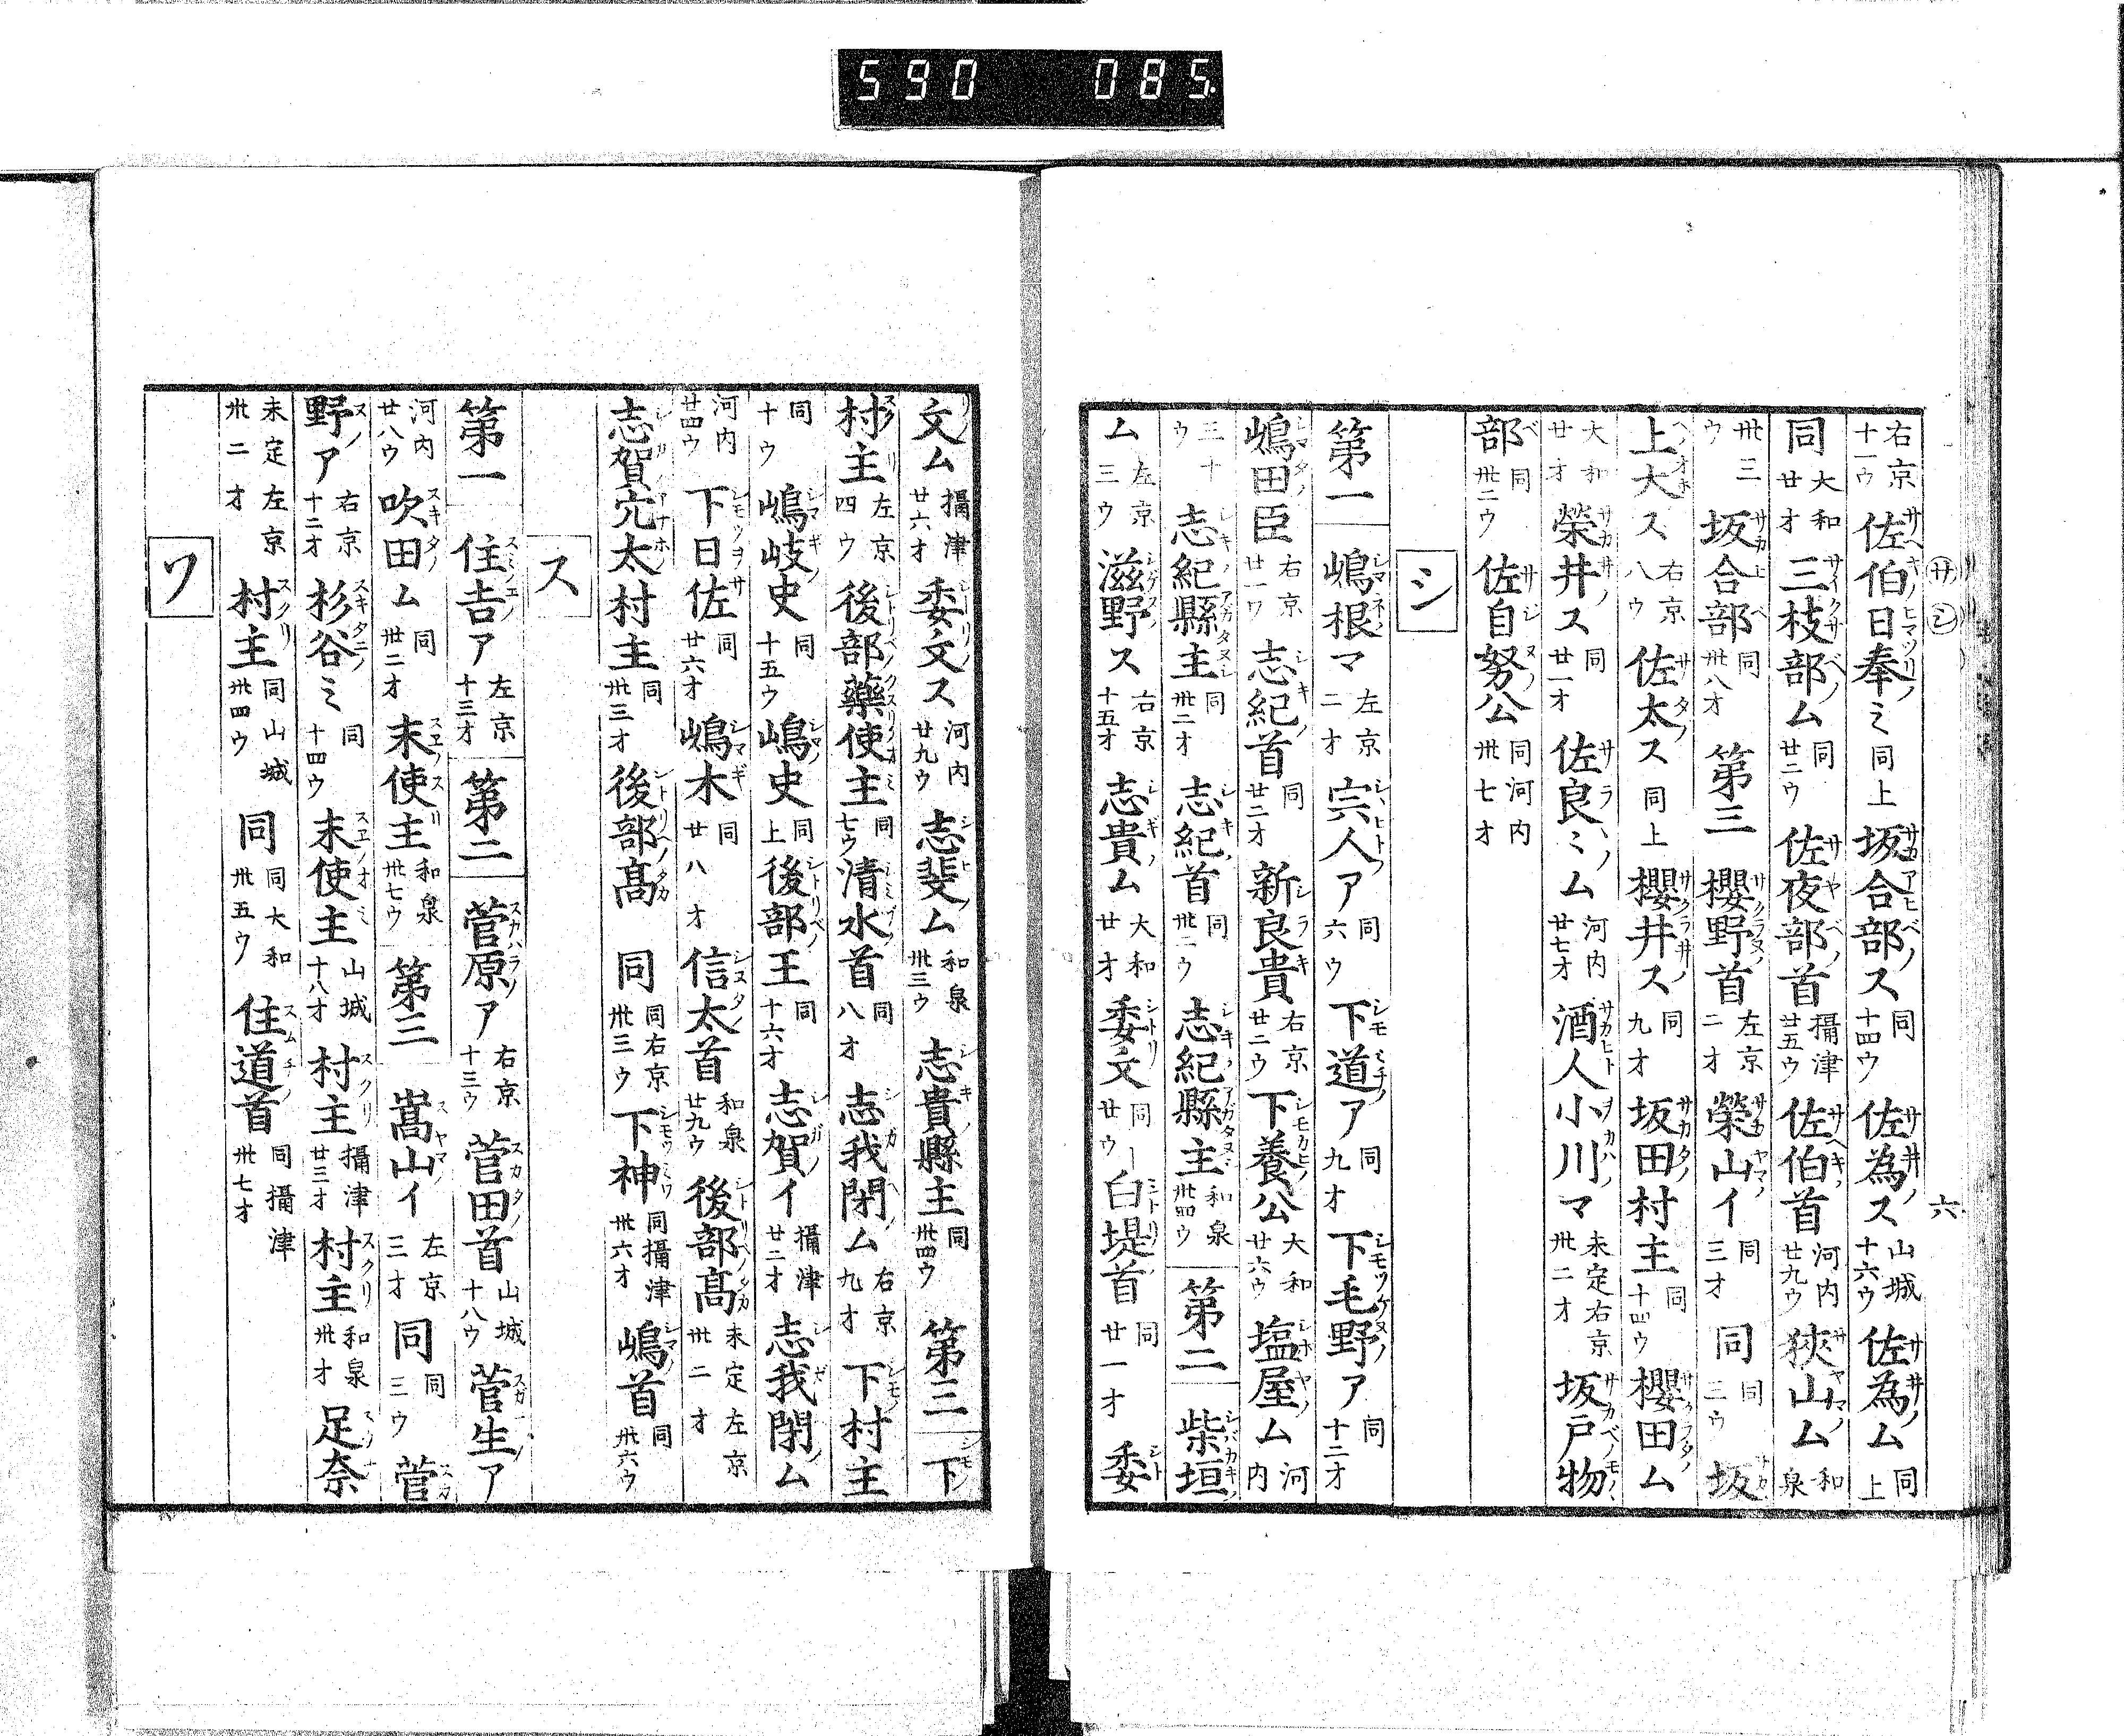 590 085
サ シ 六
右京十一ウ 佐伯日奉ミ 同上 坂合部ス 同十四ウ 佐為ス 山城十六ウ 佐為ム 同上
同 大和廿オ 三枝部ム 同廿二ウ 佐夜部首 攝津廿五ウ 佐伯首 河内廿九ウ 狹山ム 和泉
卅三ウ 坂合部 同卅八オ 第三 櫻野首 左京二オ 榮山イ 同三オ 同 同三ウ 坂
上大ス 右京八ウ 佐太ス 同上 櫻井ス 同九オ 坂田村主 同十四ウ 櫻田ム
大和廿オ 榮井ス 同廿一オ 佐良々ム 河内廿七オ 酒人小川マ 未定右京卅二オ 坂戸物
部 同卅二ウ 佐自努公 同河内卅七オ
シ
第一 嶋根マ 左京二オ 宗人ア 同六ウ 下道ア 同九オ 下毛野ア 同十二オ
嶋田臣 右京廿一ウ 志紀首 同廿二オ 新良貴 右京廿二ウ 下養公 大和廿六ウ 塩屋ム 河内
三十ウ 志紀縣主 同卅二オ 志紀首 同卅二ウ 志紀縣主 和泉卅四ウ 第二 柴垣
ム 左京三ウ 滋野ス 右京十五オ 志貴ム 大和廿オ 委文 同廿ウ 白堤首 同廿一オ 委
文ム 攝津廿六オ 委文ス 河内廿九ウ 志斐ム 和泉卅三ウ 志貴縣主 同卅四ウ 第三 下
村主 左京四ウ 後部藥使主 同七ウ 清水首 同八オ 志我閉ム 右京九オ 下村主
同十ウ 嶋岐史 同十五ウ 嶋史 同上 後部王 同十六オ 志賀イ 攝津廿二オ 志我閉ム
河内廿四ウ 下日佐 同廿六オ 嶋木 同廿八オ 信太首 和泉廿九ウ 後部高 未定左京卅二オ
志賀穴太村主 同卅三オ 後部高 同 同右京卅三ウ 下神 同攝津卅六オ 嶋首 同卅六ウ
ス
第一 住吉ア 左京十三オ 第二 菅原ア 右京十三ウ 菅田首 山城十八ウ 菅生ア
河内廿八ウ 吹田ム 同卅二オ 末使主 和泉卅七ウ 第三 嵩山イ 左京三オ 同 同三ウ 菅
野ア 右京十二オ 杉谷ミ 同十四ウ 末使主 山城十八オ 村主 攝津廿三オ 村主 和泉卅オ 足奈
未定左京卅二オ 村主 同山城卅四ウ 同 同大和卅五ウ 住道首 同攝津卅七オ
ワ